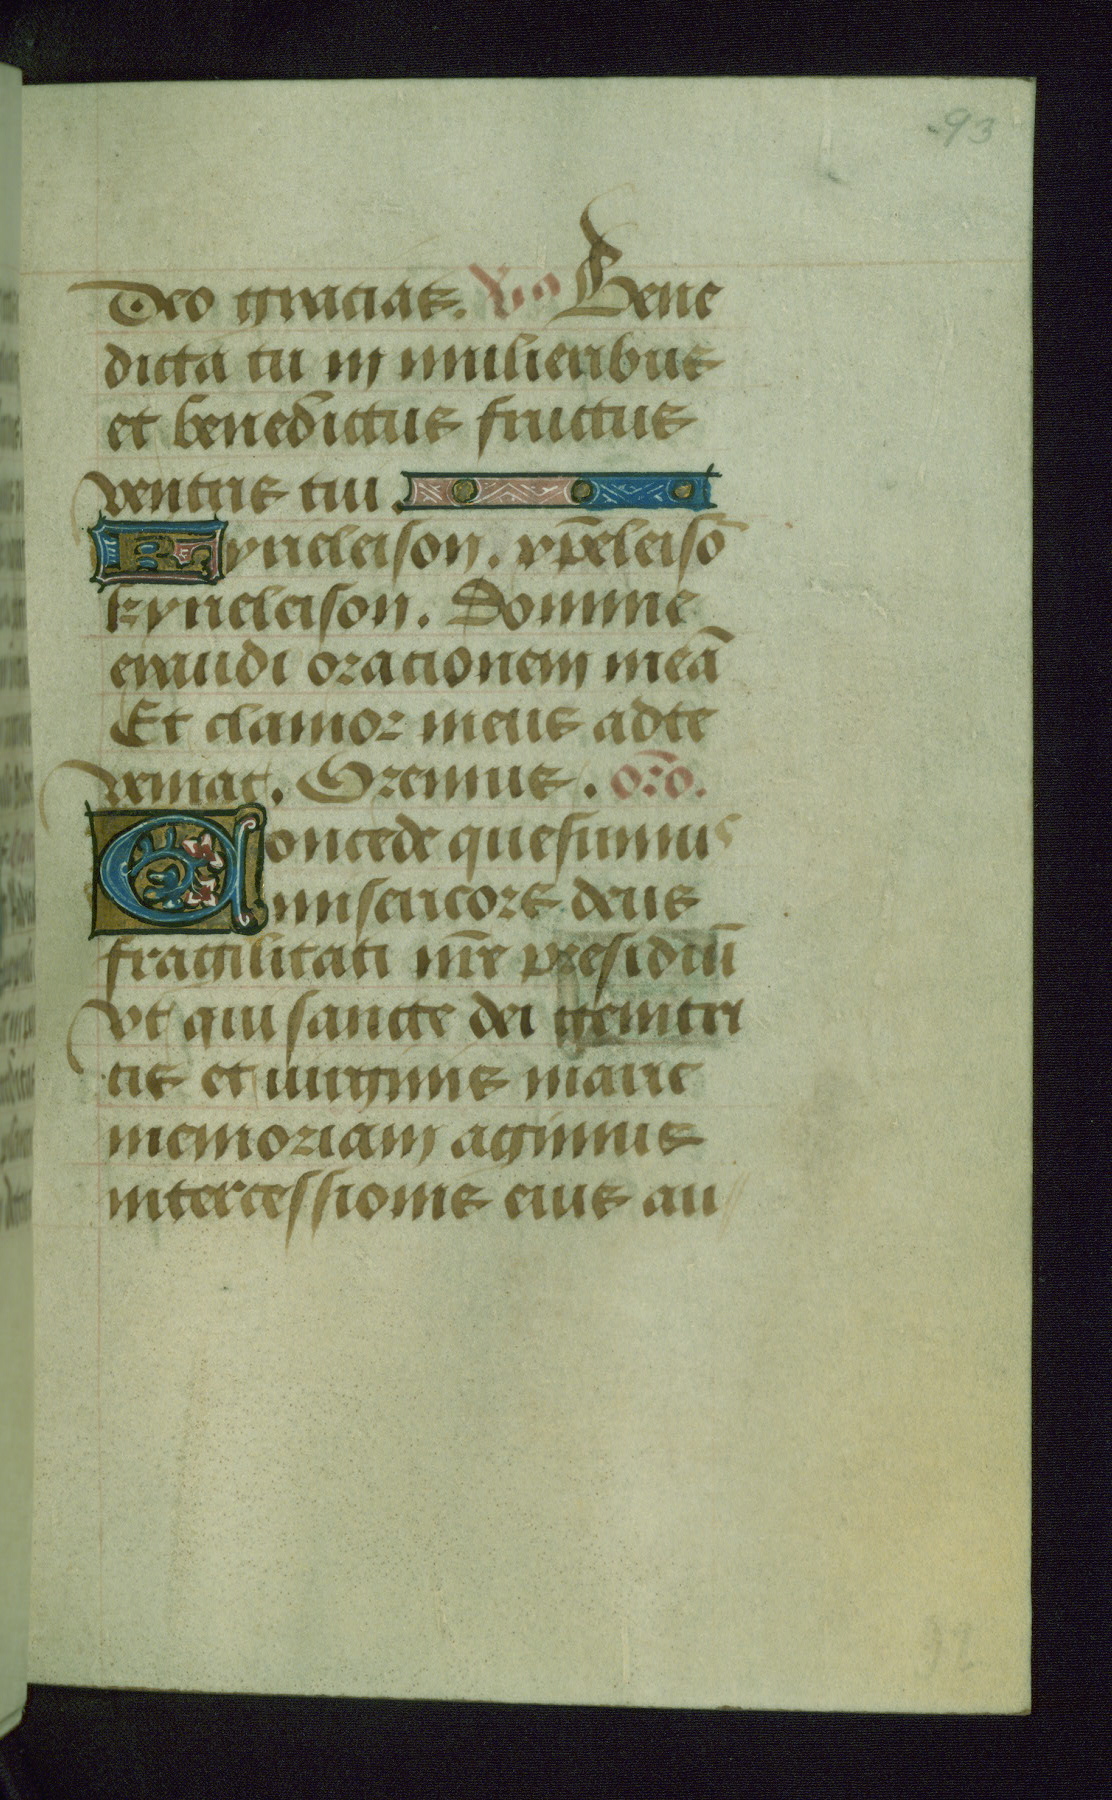 93
Deo gracias. Vs̄ Bene
dicta tu in mulieribus
et benedictus fructus
ventris tui.
Kyrieleison. xp̄eleisō
kyrieleison. Domine
exaudi orationem meā
Et clamor meus adte
veniat. Oremus. oro.
Concede quesumus
misericors deus
fragilitati nr̄e presidiū
vt qui sancte dei genitri
cis et uirginis marie
memoriam agimus
intercessionis eius au